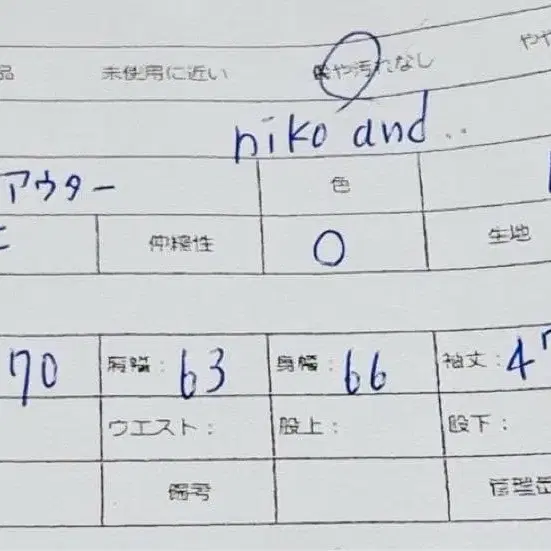 品 未使用に近い 傷や汚れなし やや
niko and..
アウター 色
伸縮性 O 生地
70 肩幅: 63 身幅: 66 袖丈: 47
ウエスト: 股上: 股下:
備考 管理